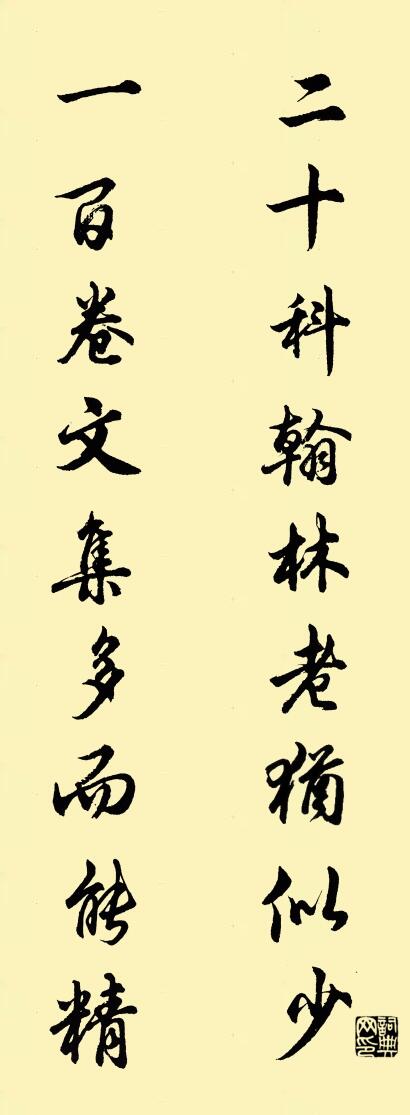 二十科翰林老犹似少
一百卷文集多而能精
詞典网印